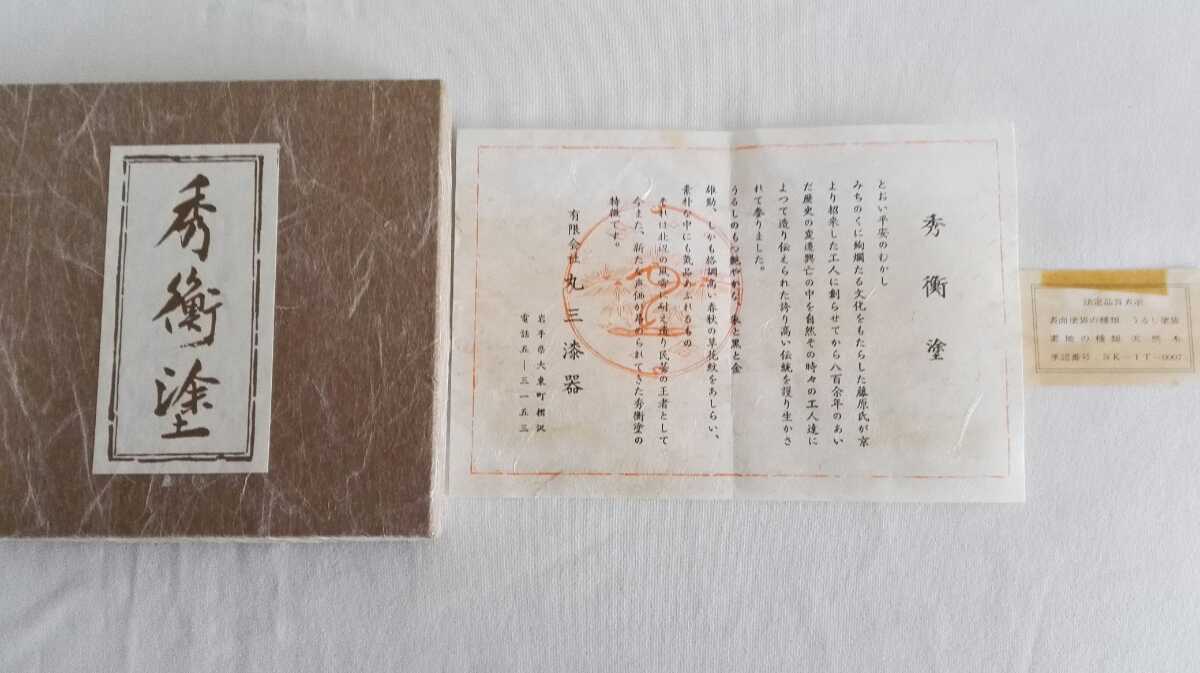 秀衡塗
秀衡塗
とおい平安のむかし
みちのくに絢爛たる文化をもたらした藤原氏が京
より招来した工人に創らせてから八百余年のあい
だ歴史の変遷興亡の中を自然その時々の工人達に
よつて造り伝えられた誇り高い伝統を護り生かさ
れて参りました。
うるしのもつ艶やかな、朱と黒と金
雄勁、しかも格調高い春秋の草花紋をあしらい、
素朴な中にも気品あふれるもの
それは北国の風雪に耐え造り民芸の王者として
今また、新たな声価が られてきた秀衡塗の
特徴です。
有限会社 丸三漆器
岩手県大東町摺沢
電話五―三一五三
法定品質表示
表面塗装の種類 うるし塗装
素地の種類 天然木
承認番号 SK-IT-0007